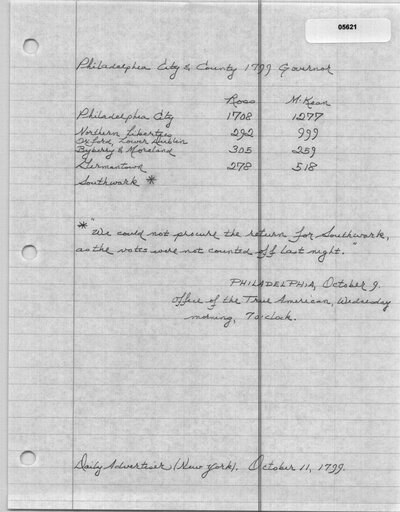 05621
Philadelphia City & County 1799 Governor
Ross McKean
Philadelphia City 1708 1277
Northern Liberties 292 999
Oxford, Lower Dublin
Byberry & Moreland 305 259
Germantown 278 518
Southwark *
* "We could not procure the return for Southwark,
as the votes were not counted off last night."
PHILADELPHIA, October 9.
Office of the True American, Wednesday
morning, 7 o'clock.
Daily Advertiser (New York). October 11, 1799.